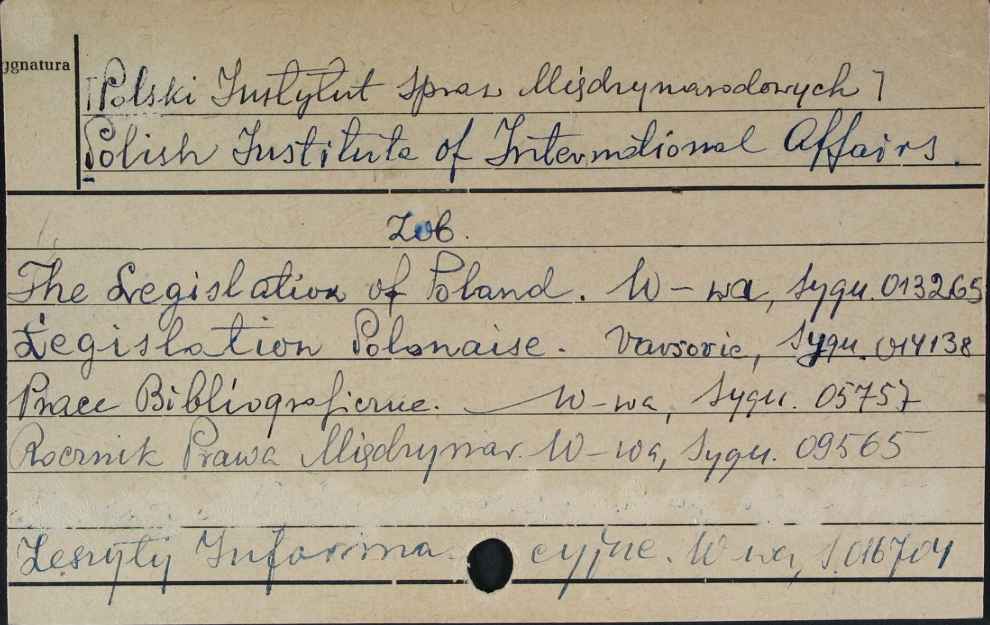 ygnatura
[Polski Instytut Spraw Międzynarodowych]
Polish Institute of International Affairs.
Zob.
The Legislation of Poland. W-wa, Sygn. 013265
Législation Polonaise. Varsovie, Sygn. 014138
Prace Bibliograficzne. — W-wa, Sygn. 05757
Rocznik Prawa Międzynar. W-wa, Sygn. 09565
Zeszyty Informacyjne. W-wa, S. 016704